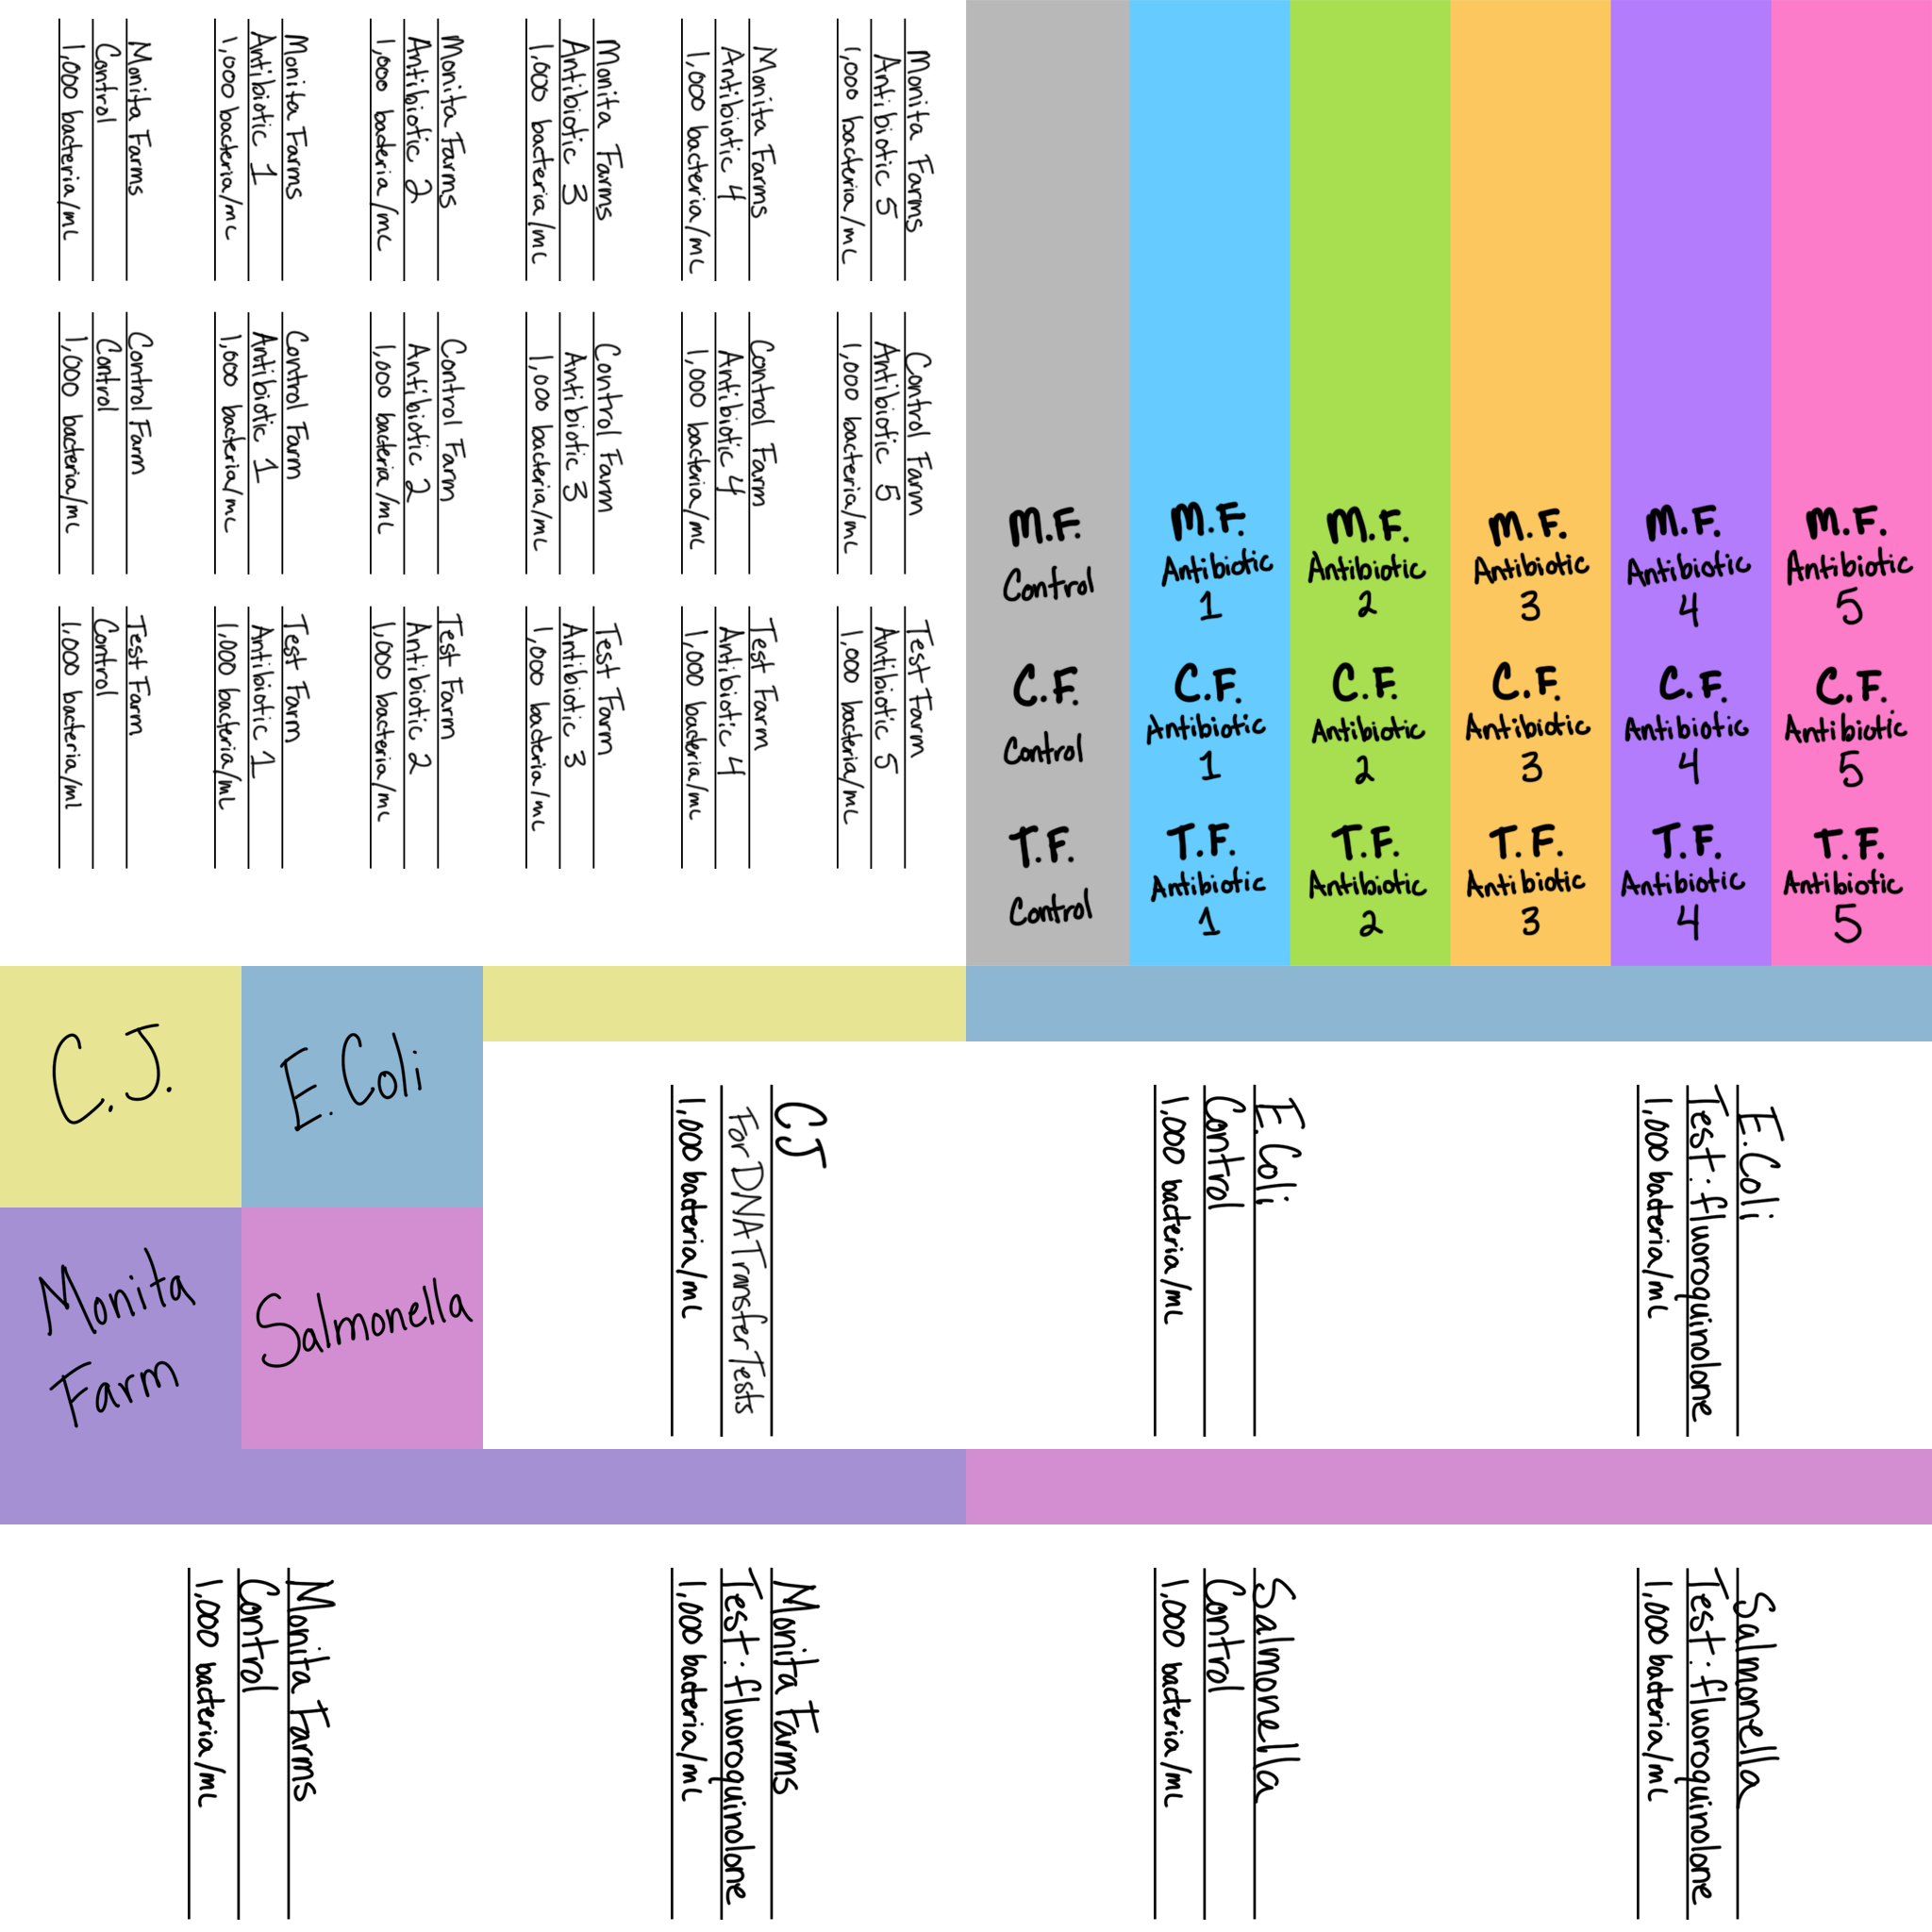 Monita Farms
Control
1,000 bacteria/mL
Monita Farms
Antibiotic 1
1,000 bacteria/mL
Monita Farms
Antibiotic 2
1,000 bacteria/mL
Monita Farms
Antibiotic 3
1,000 bacteria/mL
Monita Farms
Antibiotic 4
1,000 bacteria/mL
Monita Farms
Antibiotic 5
1,000 bacteria/mL
Control Farm
Control
1,000 bacteria/mL
Control Farm
Antibiotic 1
1,000 bacteria/mL
Control Farm
Antibiotic 2
1,000 bacteria/mL
Control Farm
Antibiotic 3
1,000 bacteria/mL
Control Farm
Antibiotic 4
1,000 bacteria/mL
Control Farm
Antibiotic 5
1,000 bacteria/mL
Test Farm
Control
1,000 bacteria/ml
Test Farm
Antibiotic 1
1,000 bacteria/mL
Test Farm
Antibiotic 2
1,000 bacteria/mL
Test Farm
Antibiotic 3
1,000 bacteria/mL
Test Farm
Antibiotic 4
1,000 bacteria/mL
Test Farm
Antibiotic 5
1,000 bacteria/mL
M.F.
Control
M.F.
Antibiotic
1
M.F.
Antibiotic
2
M.F.
Antibiotic
3
M.F.
Antibiotic
4
M.F.
Antibiotic
5
C.F.
Control
C.F.
Antibiotic
1
C.F.
Antibiotic
2
C.F.
Antibiotic
3
C.F.
Antibiotic
4
C.F.
Antibiotic
5
T.F.
Control
T.F.
Antibiotic
1
T.F.
Antibiotic
2
T.F.
Antibiotic
3
T.F.
Antibiotic
4
T.F.
Antibiotic
5
C.J.
E. Coli
Monita
Farm
Salmonella
CJ
For DNA Transfer Tests
1,000 bacteria/mL
E. Coli
Control
1,000 bacteria/mL
E. Coli
Test: fluoroquinolone
1,000 bacteria/mL
Monita Farms
Control
1,000 bacteria/mL
Monita Farms
Test: fluoroquinolone
1,000 bacteria/mL
Salmonella
Control
1,000 bacteria/mL
Salmonella
Test: fluoroquinolone
1,000 bacteria/mL